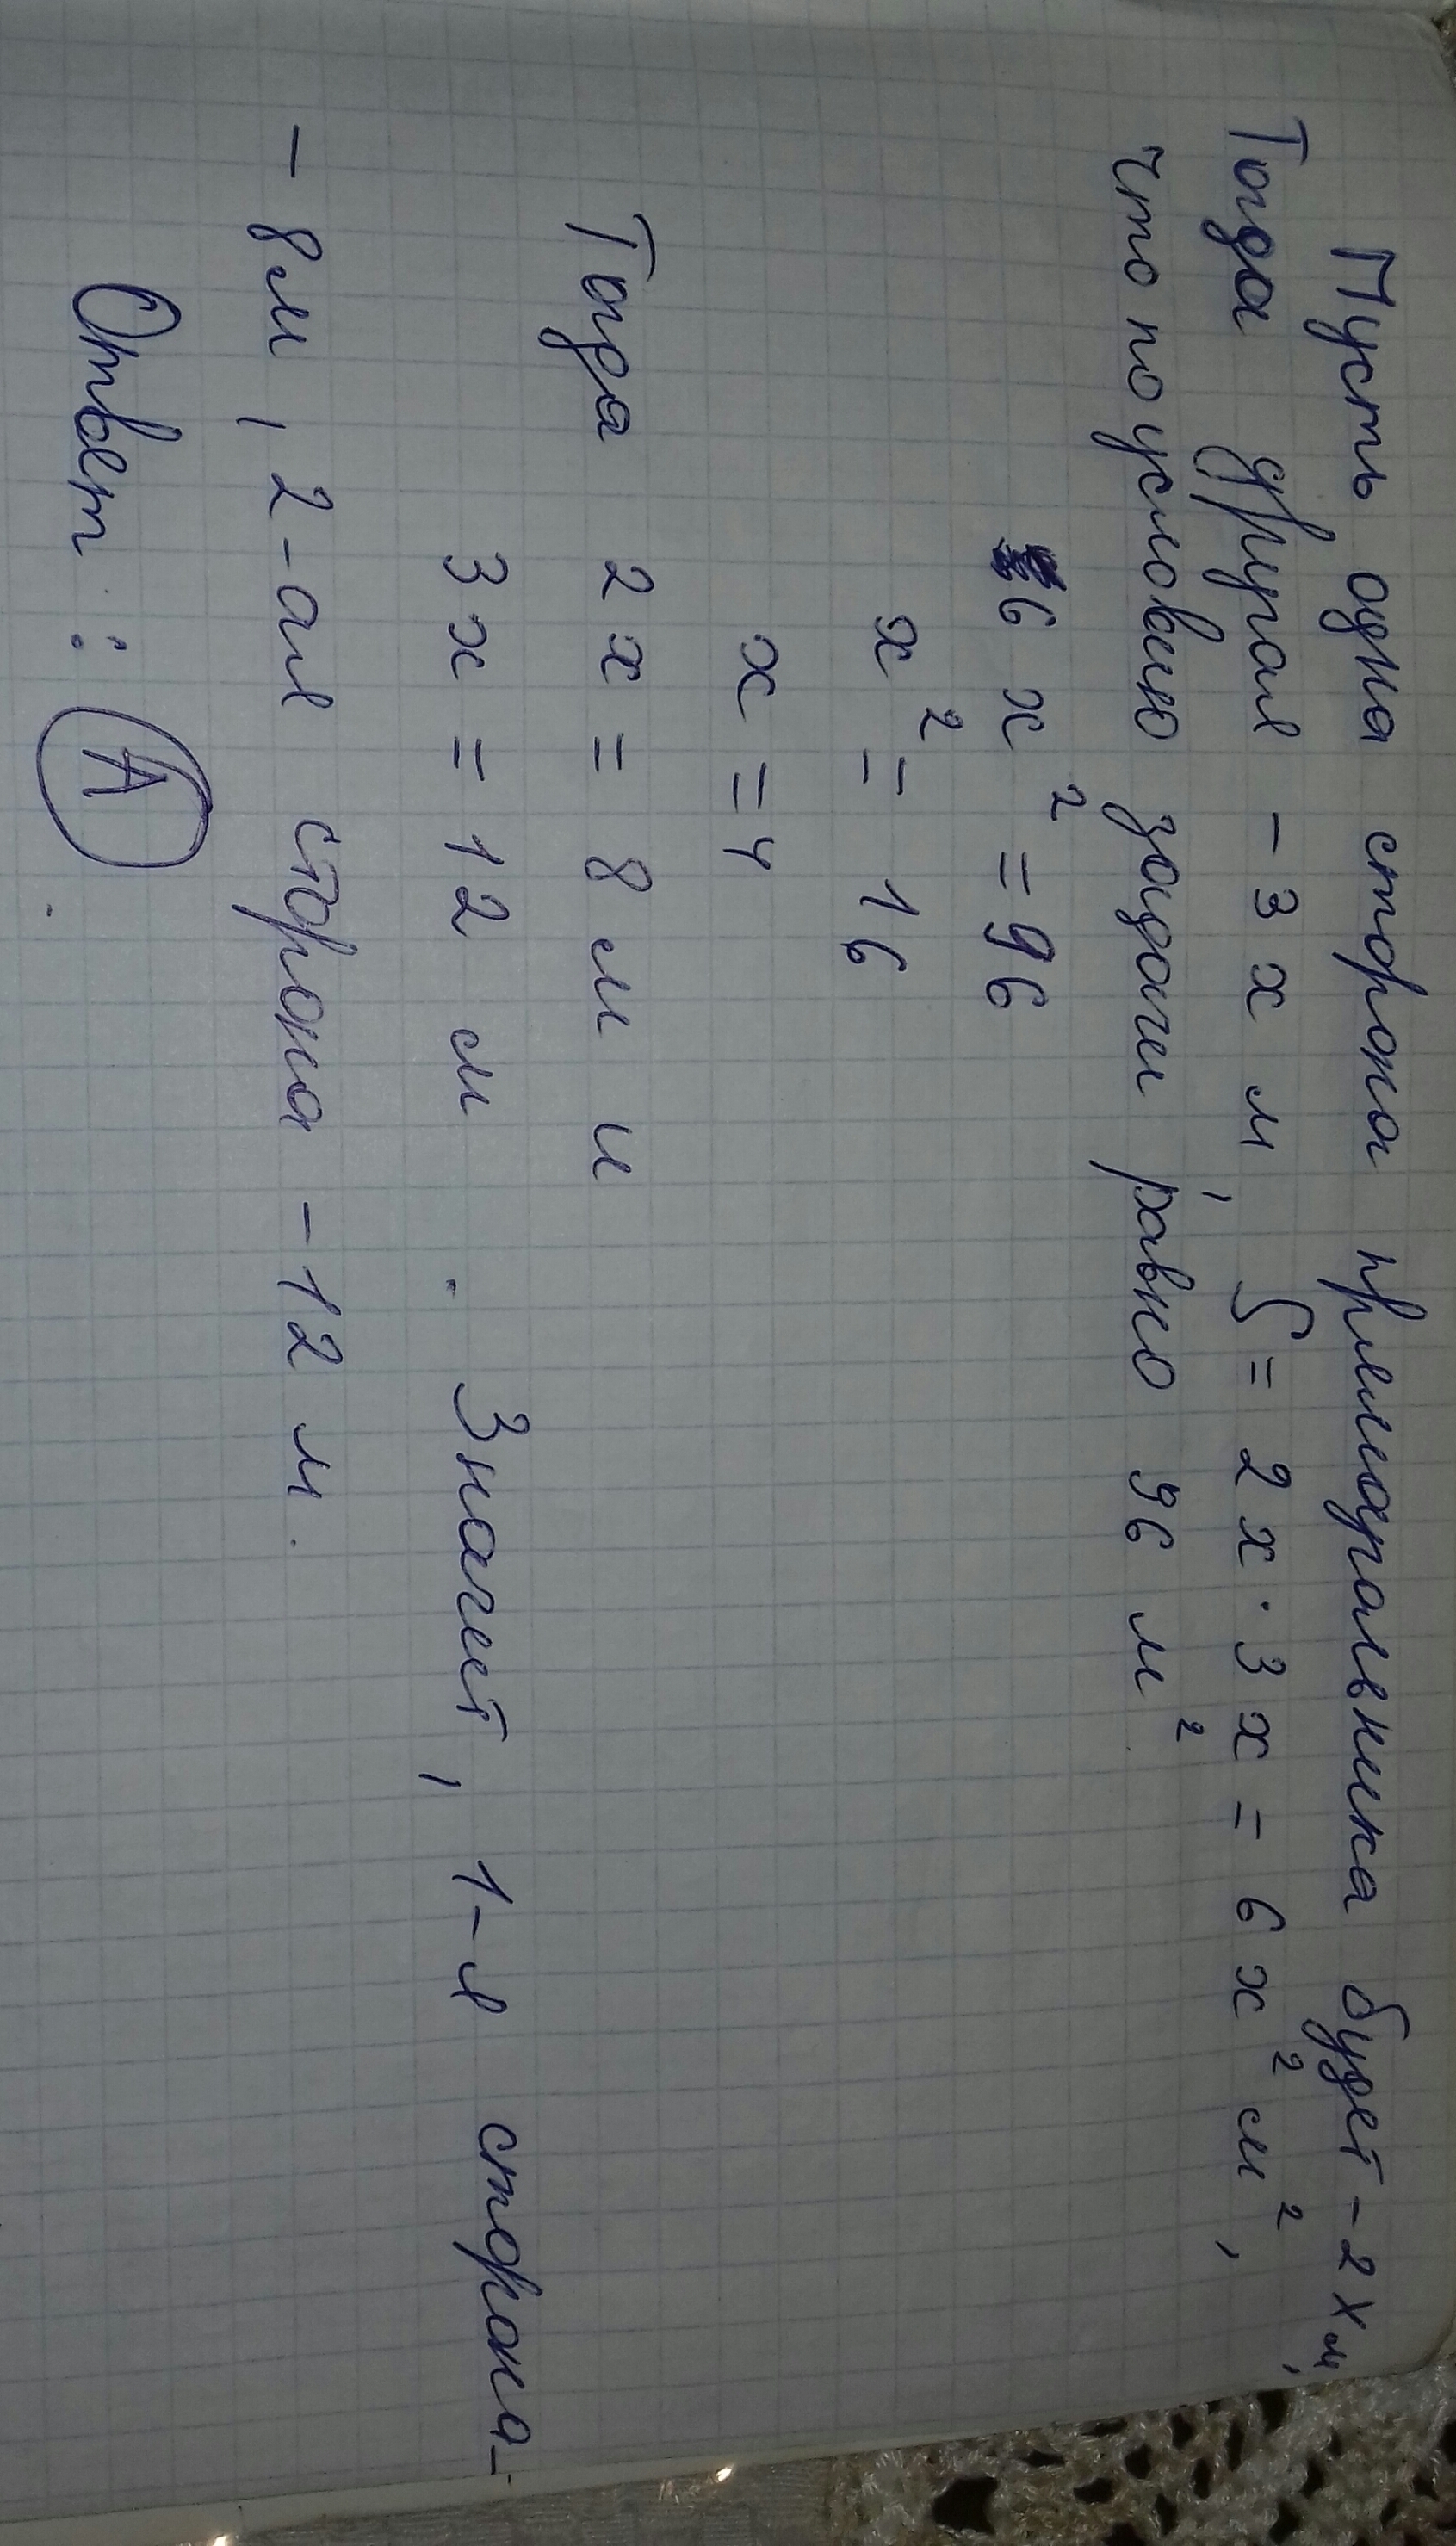 Пусть одна сторона прямоугольника будет - 2 х м,
Тогда другая - 3 х м, S = 2 х · 3 х = 6 х² м²,
что по условию задачи равно 96 м²
6 х² = 96
х² = 16
х = 4
Тогда 2 х = 8 м и
3 х = 12 м. Значит, 1-я сторона -
- 8 м, 2-ая сторона - 12 м.
Ответ: А.